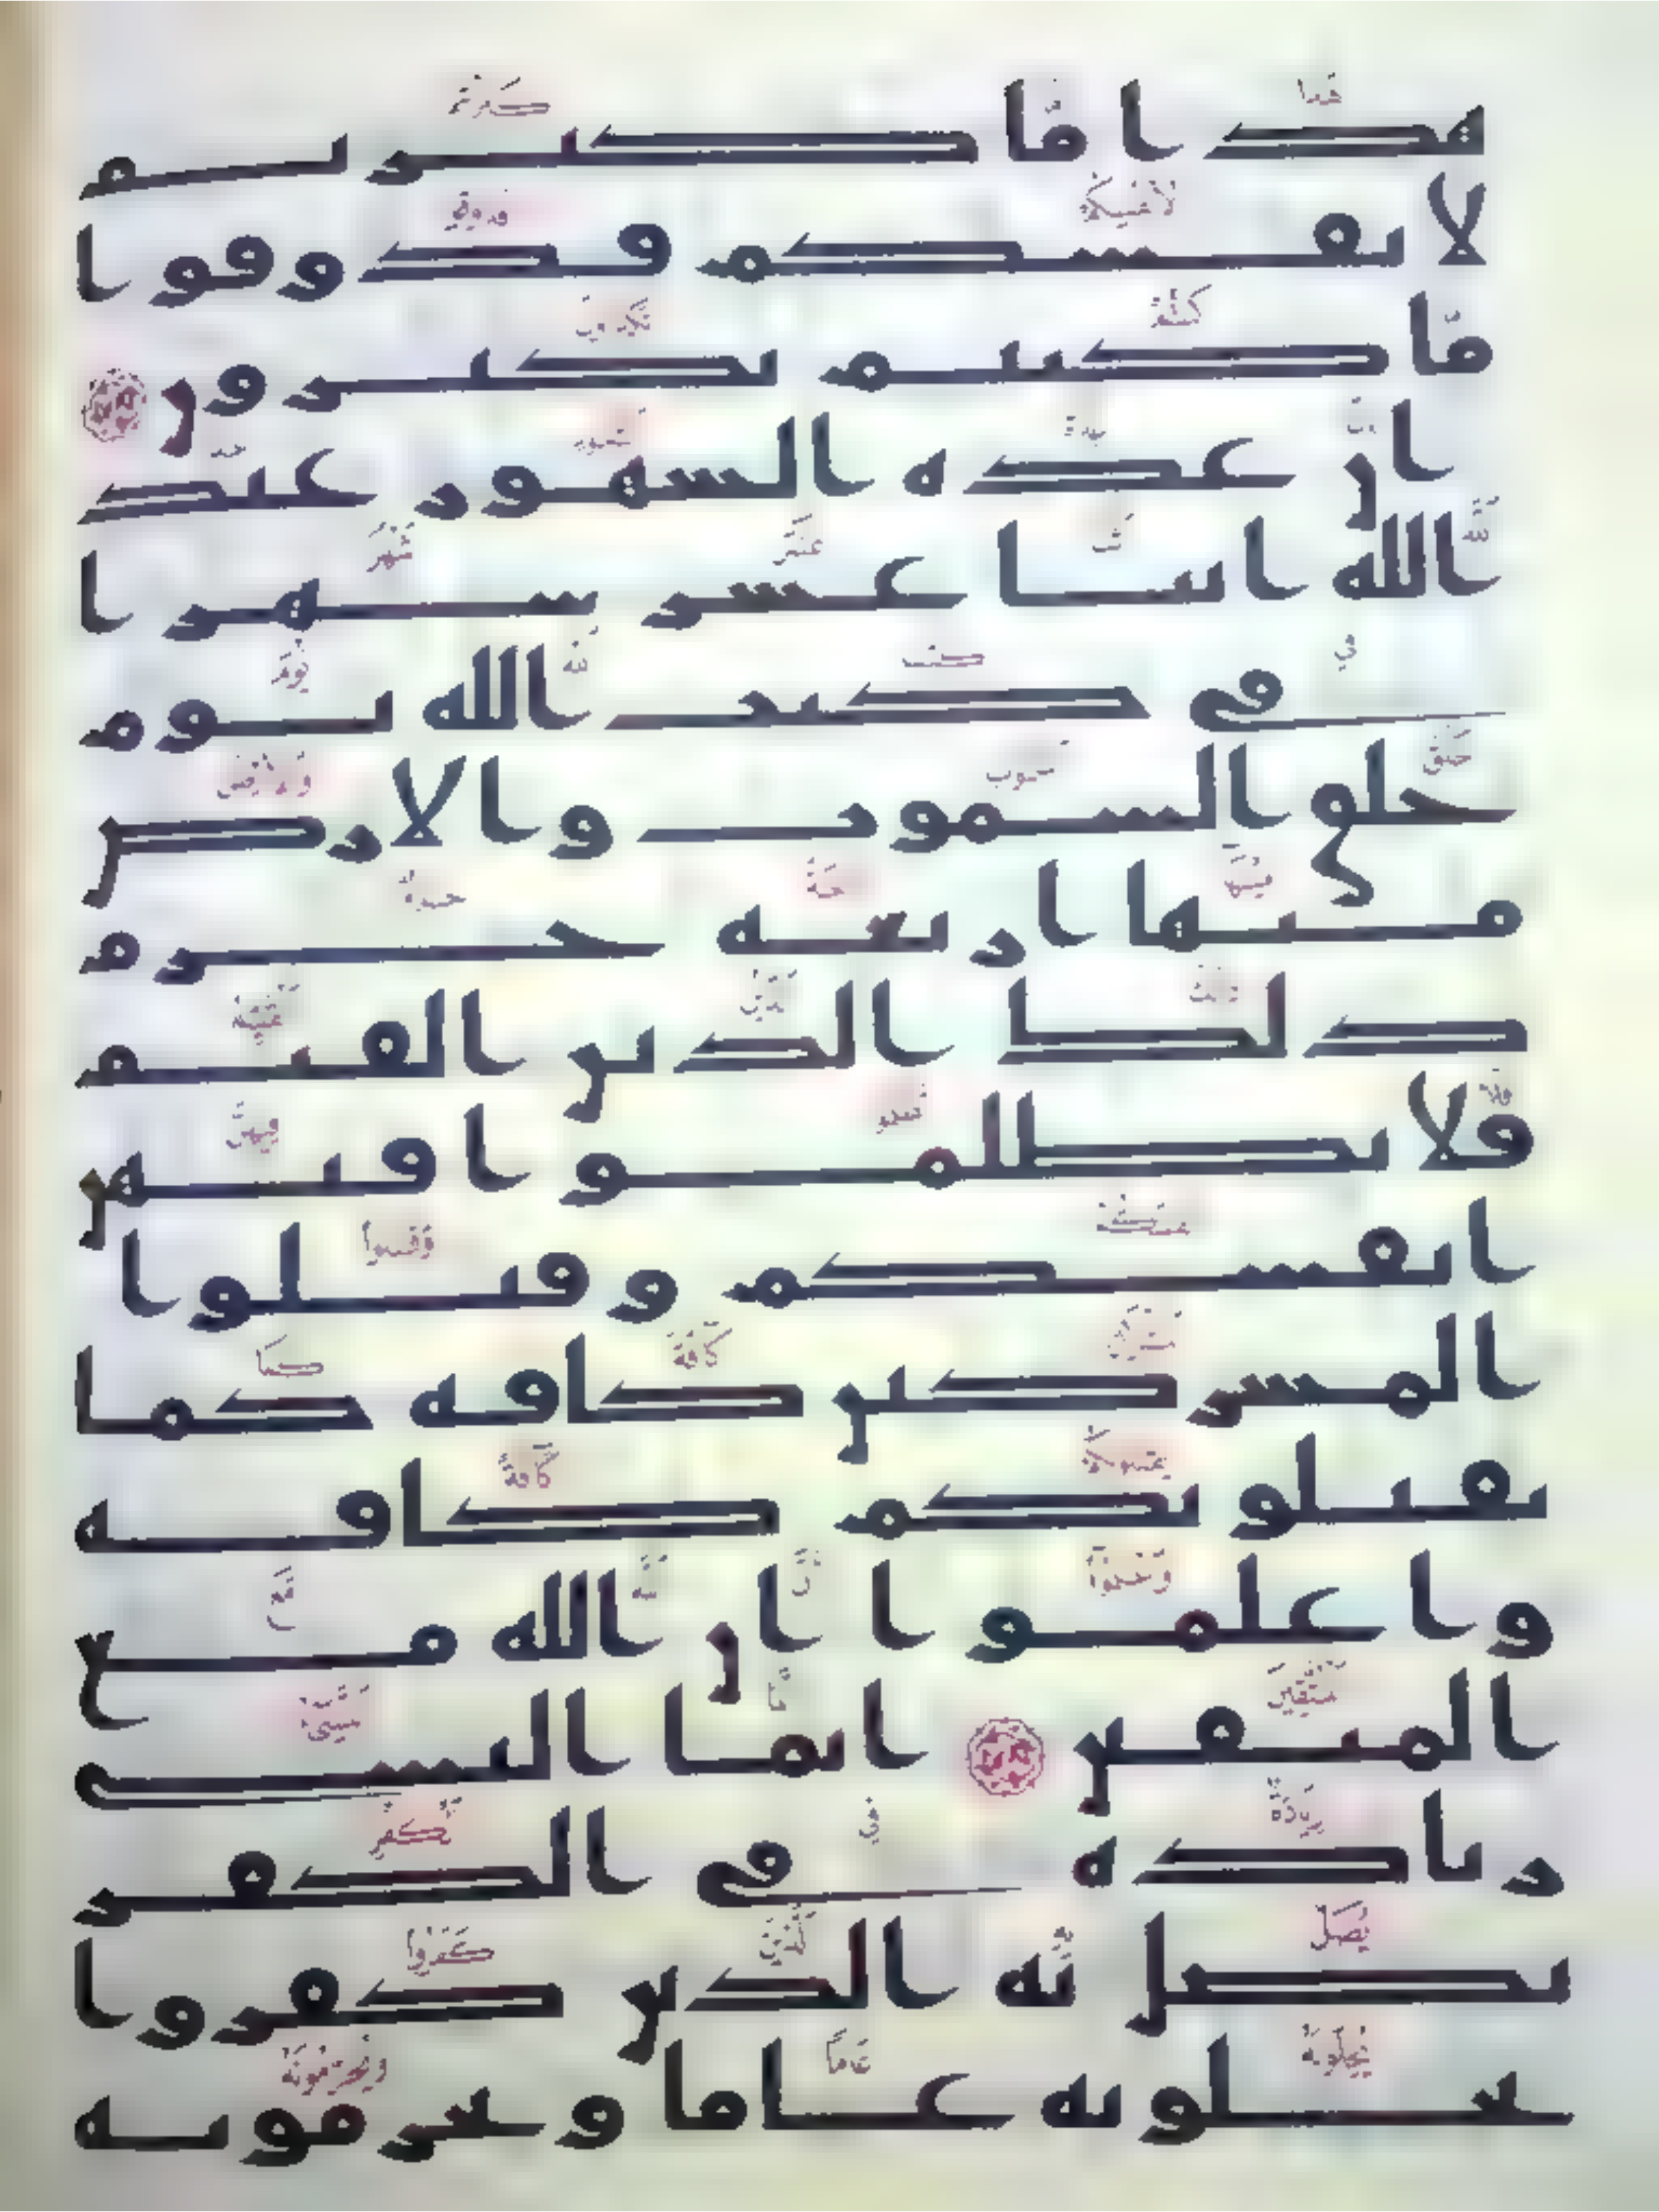 هذا ما كنزتم
لانفسكم فذوقوا
ما كنتم تكنزون
ان عدة الشهور عند
الله اثنا عشر شهرا
في كتب الله يوم
خلق السموت والارض
منها اربعة حرم
ذلك الدين القيم
فلا تظلموا فيهن
انفسكم وقتلوا
المشركين كافة كما
يقتلونكم كافة
واعلموا ان الله مع
المتقين انما النسي
زيادة في الكفر
يضل به الذين كفروا
يحلونه عاما ويحرمونه